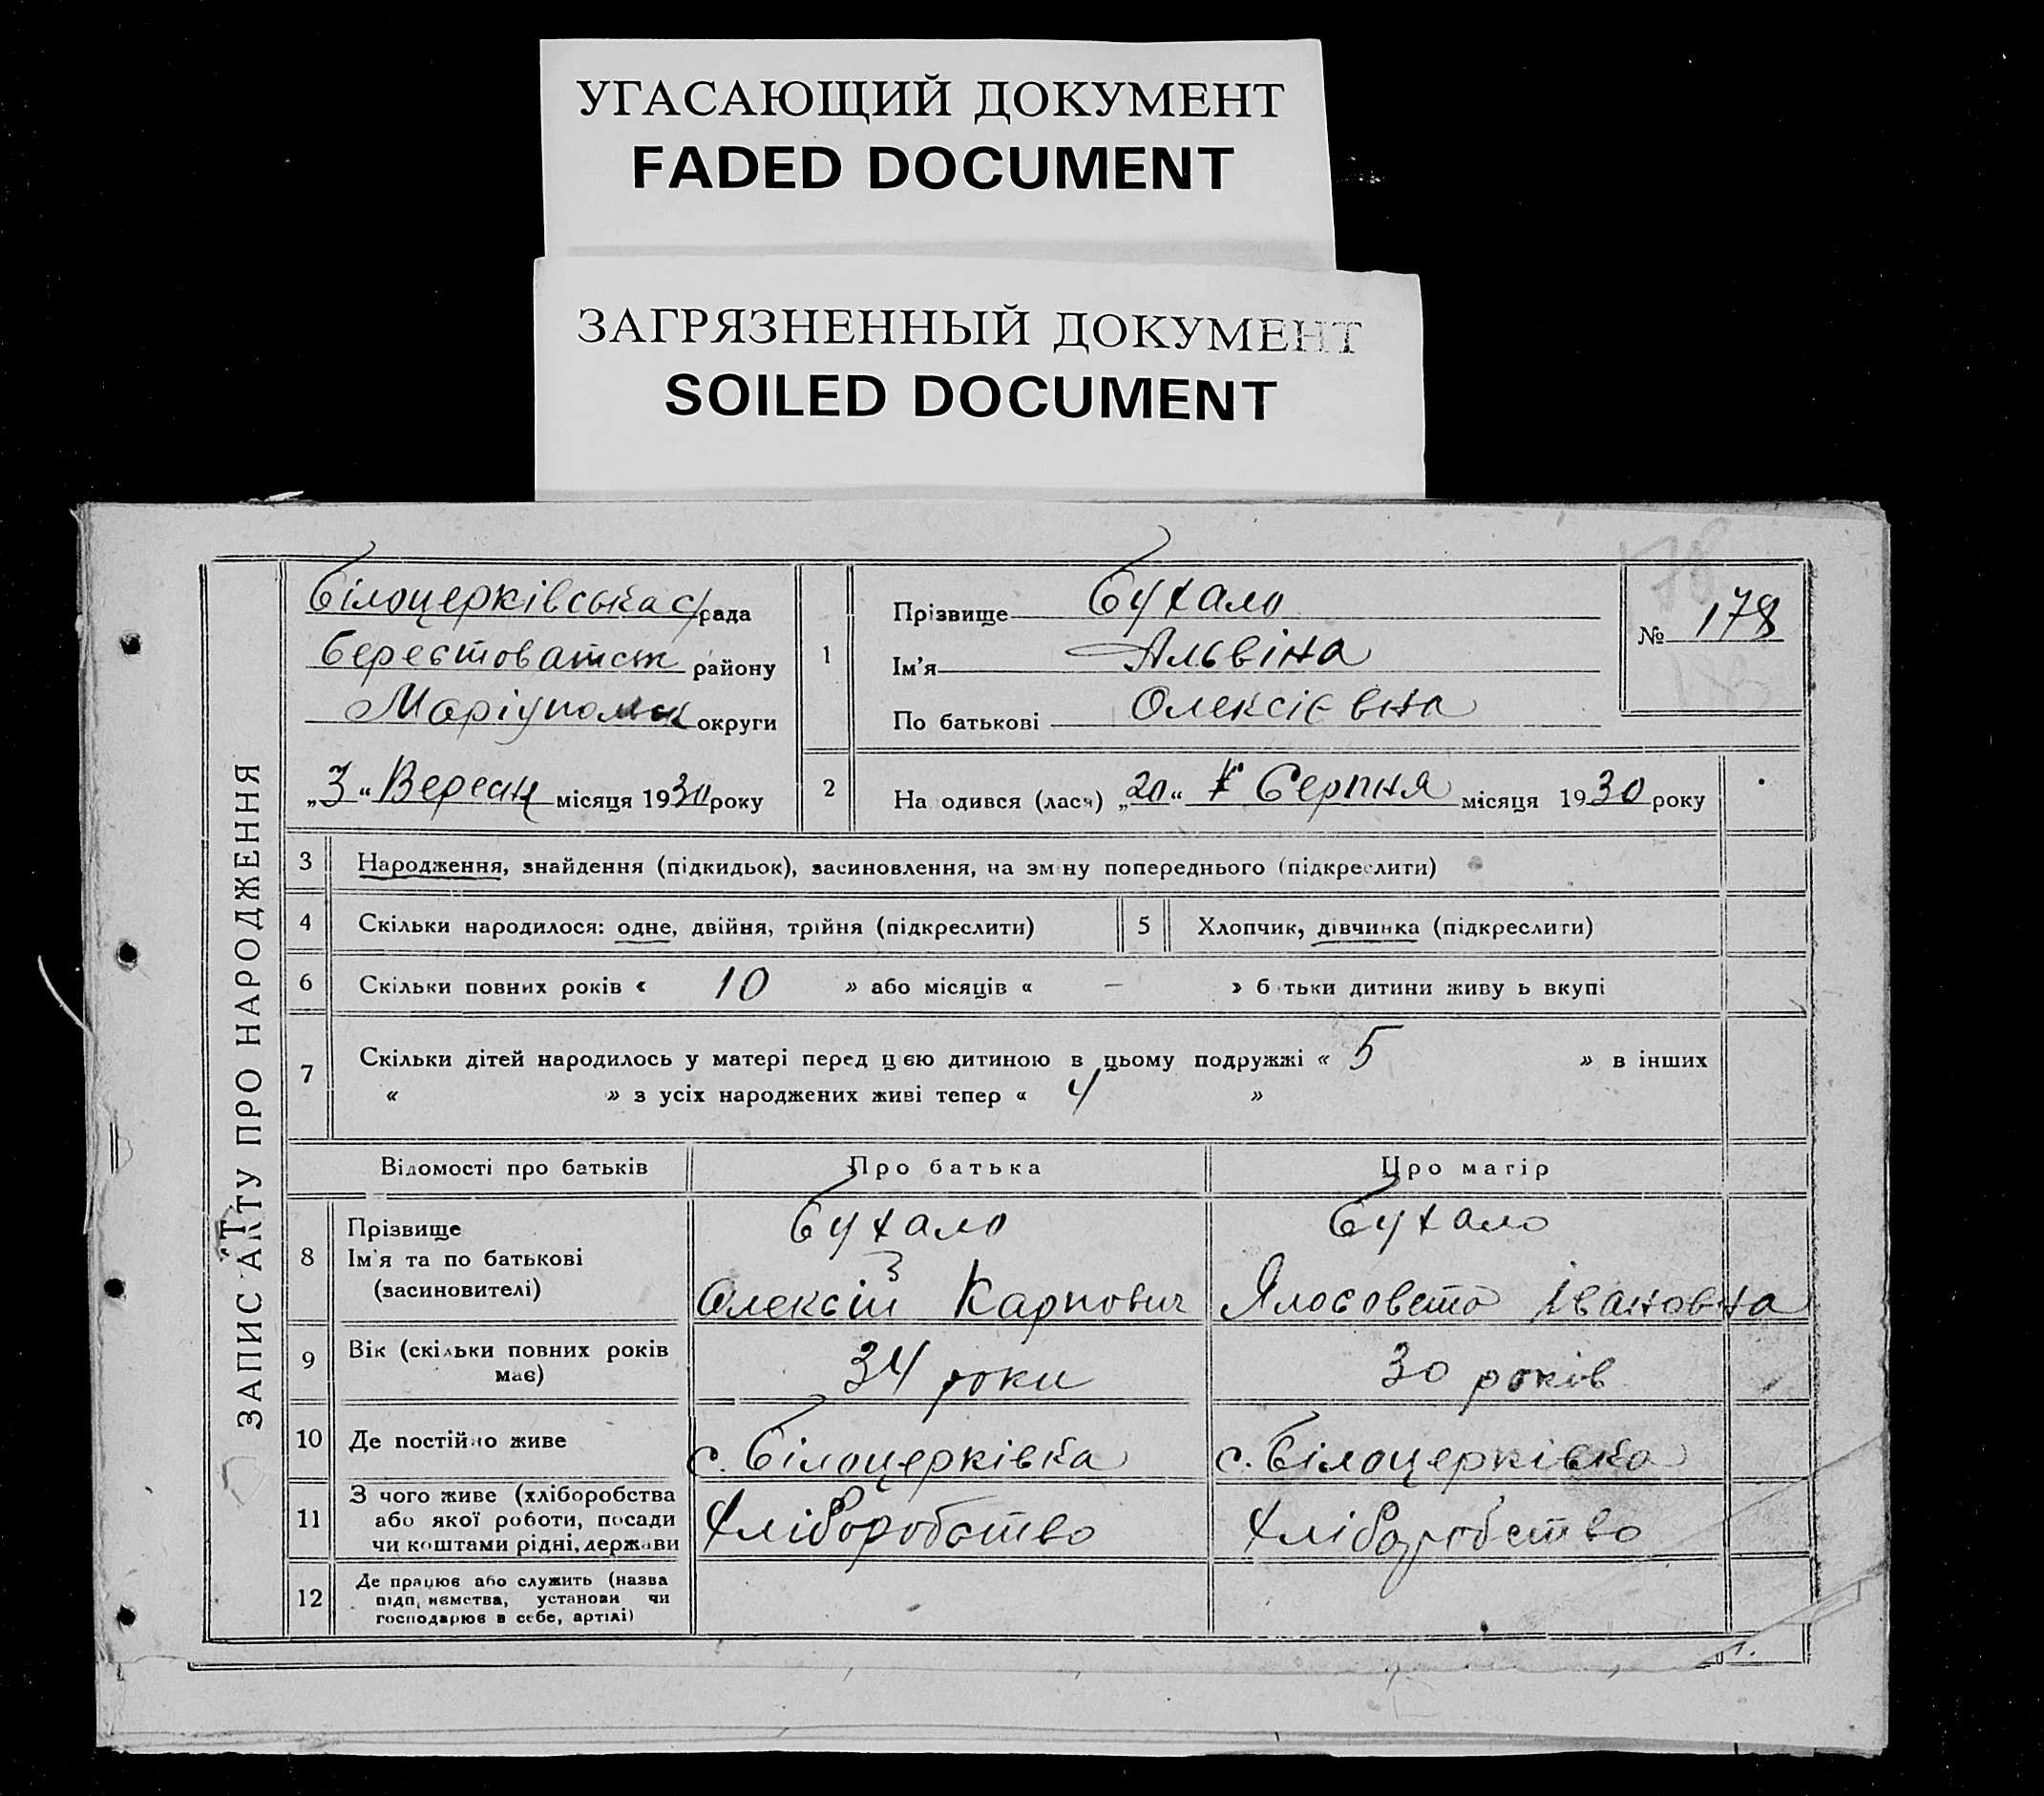 УГАСАЮЩИЙ ДОКУМЕНТ
FADED DOCUMENT
ЗАГРЯЗНЕННЫЙ ДОКУМЕНТ
SOILED DOCUMENT
ЗАПИС АКТУ ПРО НАРОДЖЕННЯ
Білоцерківська с/рада
Берестоватськ району
Маріупольськ округи
„3“ Вересн місяця 1930 року
1
Прізвище Бухало
Ім'я Альвіна
По батькові Олексієвна
№ 178
2 На одився (лася) „20“ Серпня місяця 1930 року
3 Народження, знайдення (підкидьок), засиновлення, на зміну попереднього (підкреслити)
4 Скільки народилося: одне, двійня, трійня (підкреслити)
5 Хлопчик, дівчинка (підкреслити)
6 Скільки повних років « 10 » або місяців « – » б тьки дитини живу ь вкупі
7 Скільки дітей народилось у матері перед цією дитиною в цьому подружжі « 5 » в інших
« » з усіх народжених живі тепер « 4 »
Відомості про батьків Про батька Про матір
8 Прізвище Бухало Бухало
Ім'я та по батькові
(засиновителі) Олексій Карпович Ялосовета Івановна
9 Вік (скільки повних років
має) 34 роки 30 років
10 Де постійно живе с. Білоцерківка с. Білоцерківка
11 З чого живе (хліборобства
або якої роботи, посади
чи коштами рідні, держави Хліборобство Хліборобство
12 Де працює або служить (назва
підп, немства, установи чи
господарює в себе, артілі)